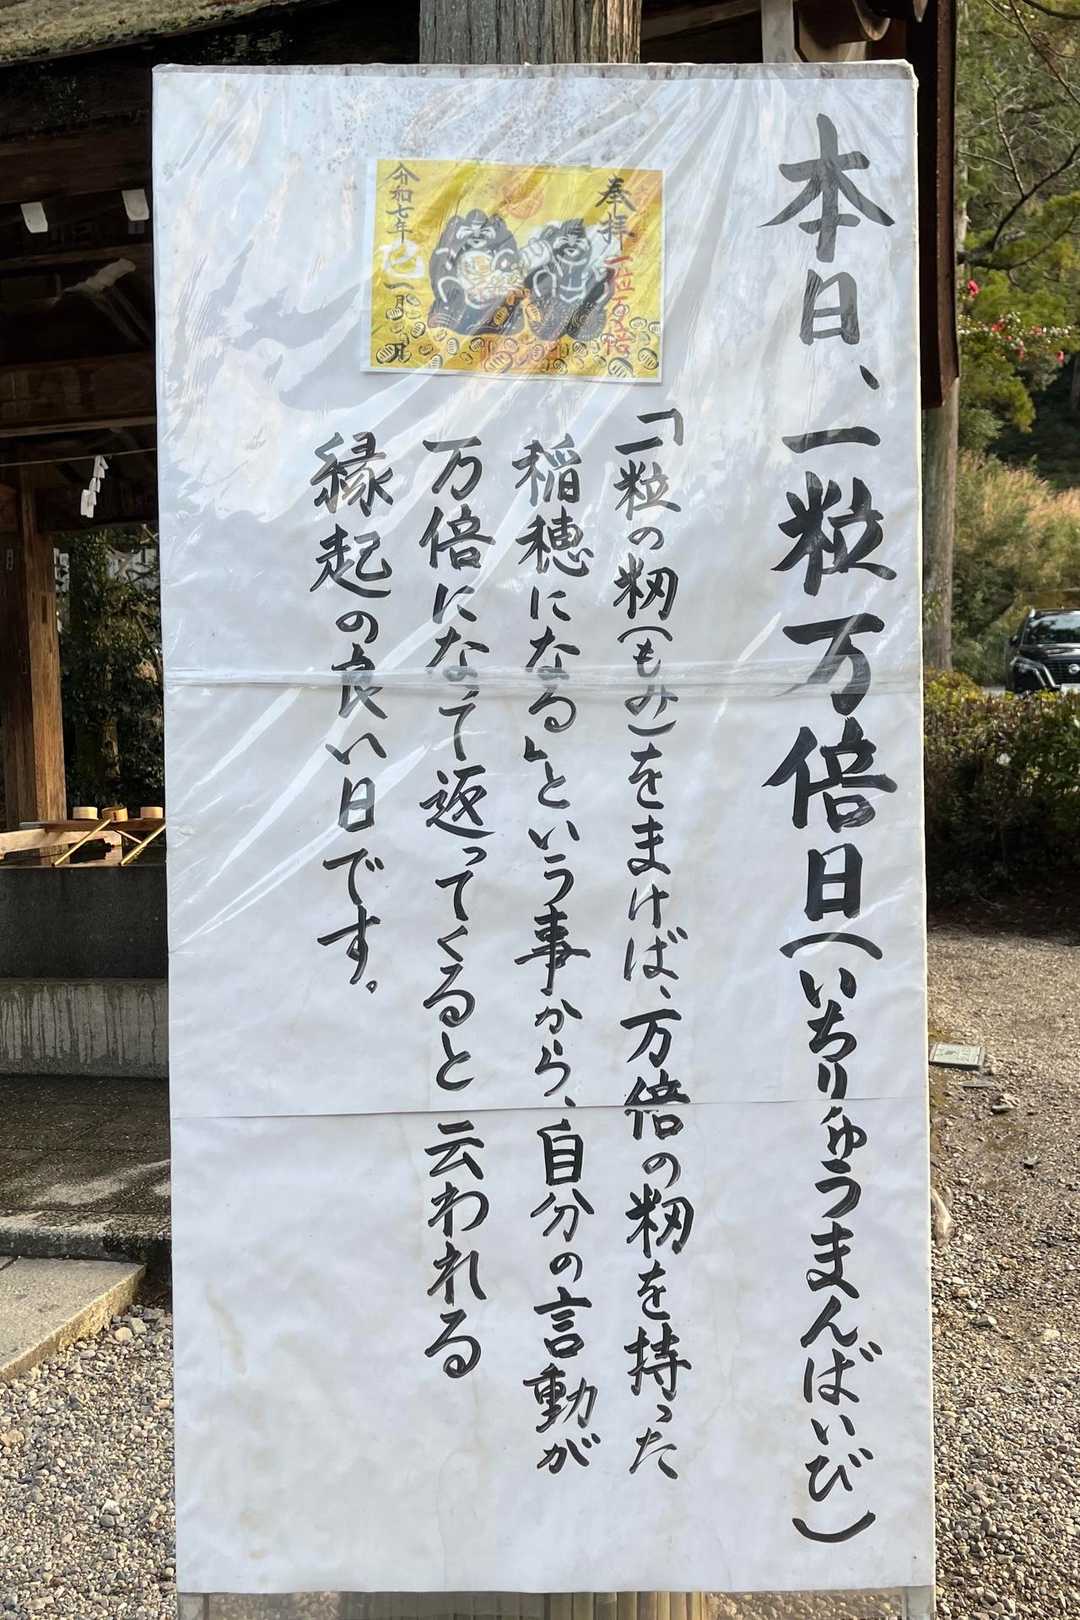 本日、一粒万倍日（いちりゅうまんばいび）
「一粒の籾（もみ）をまけば、万倍の籾を持った
稲穂になる」という事から、自分の言動が
万倍になって返ってくると云われる
縁起の良い日です。
奉拝
一粒万倍
令和七年
巳
一月